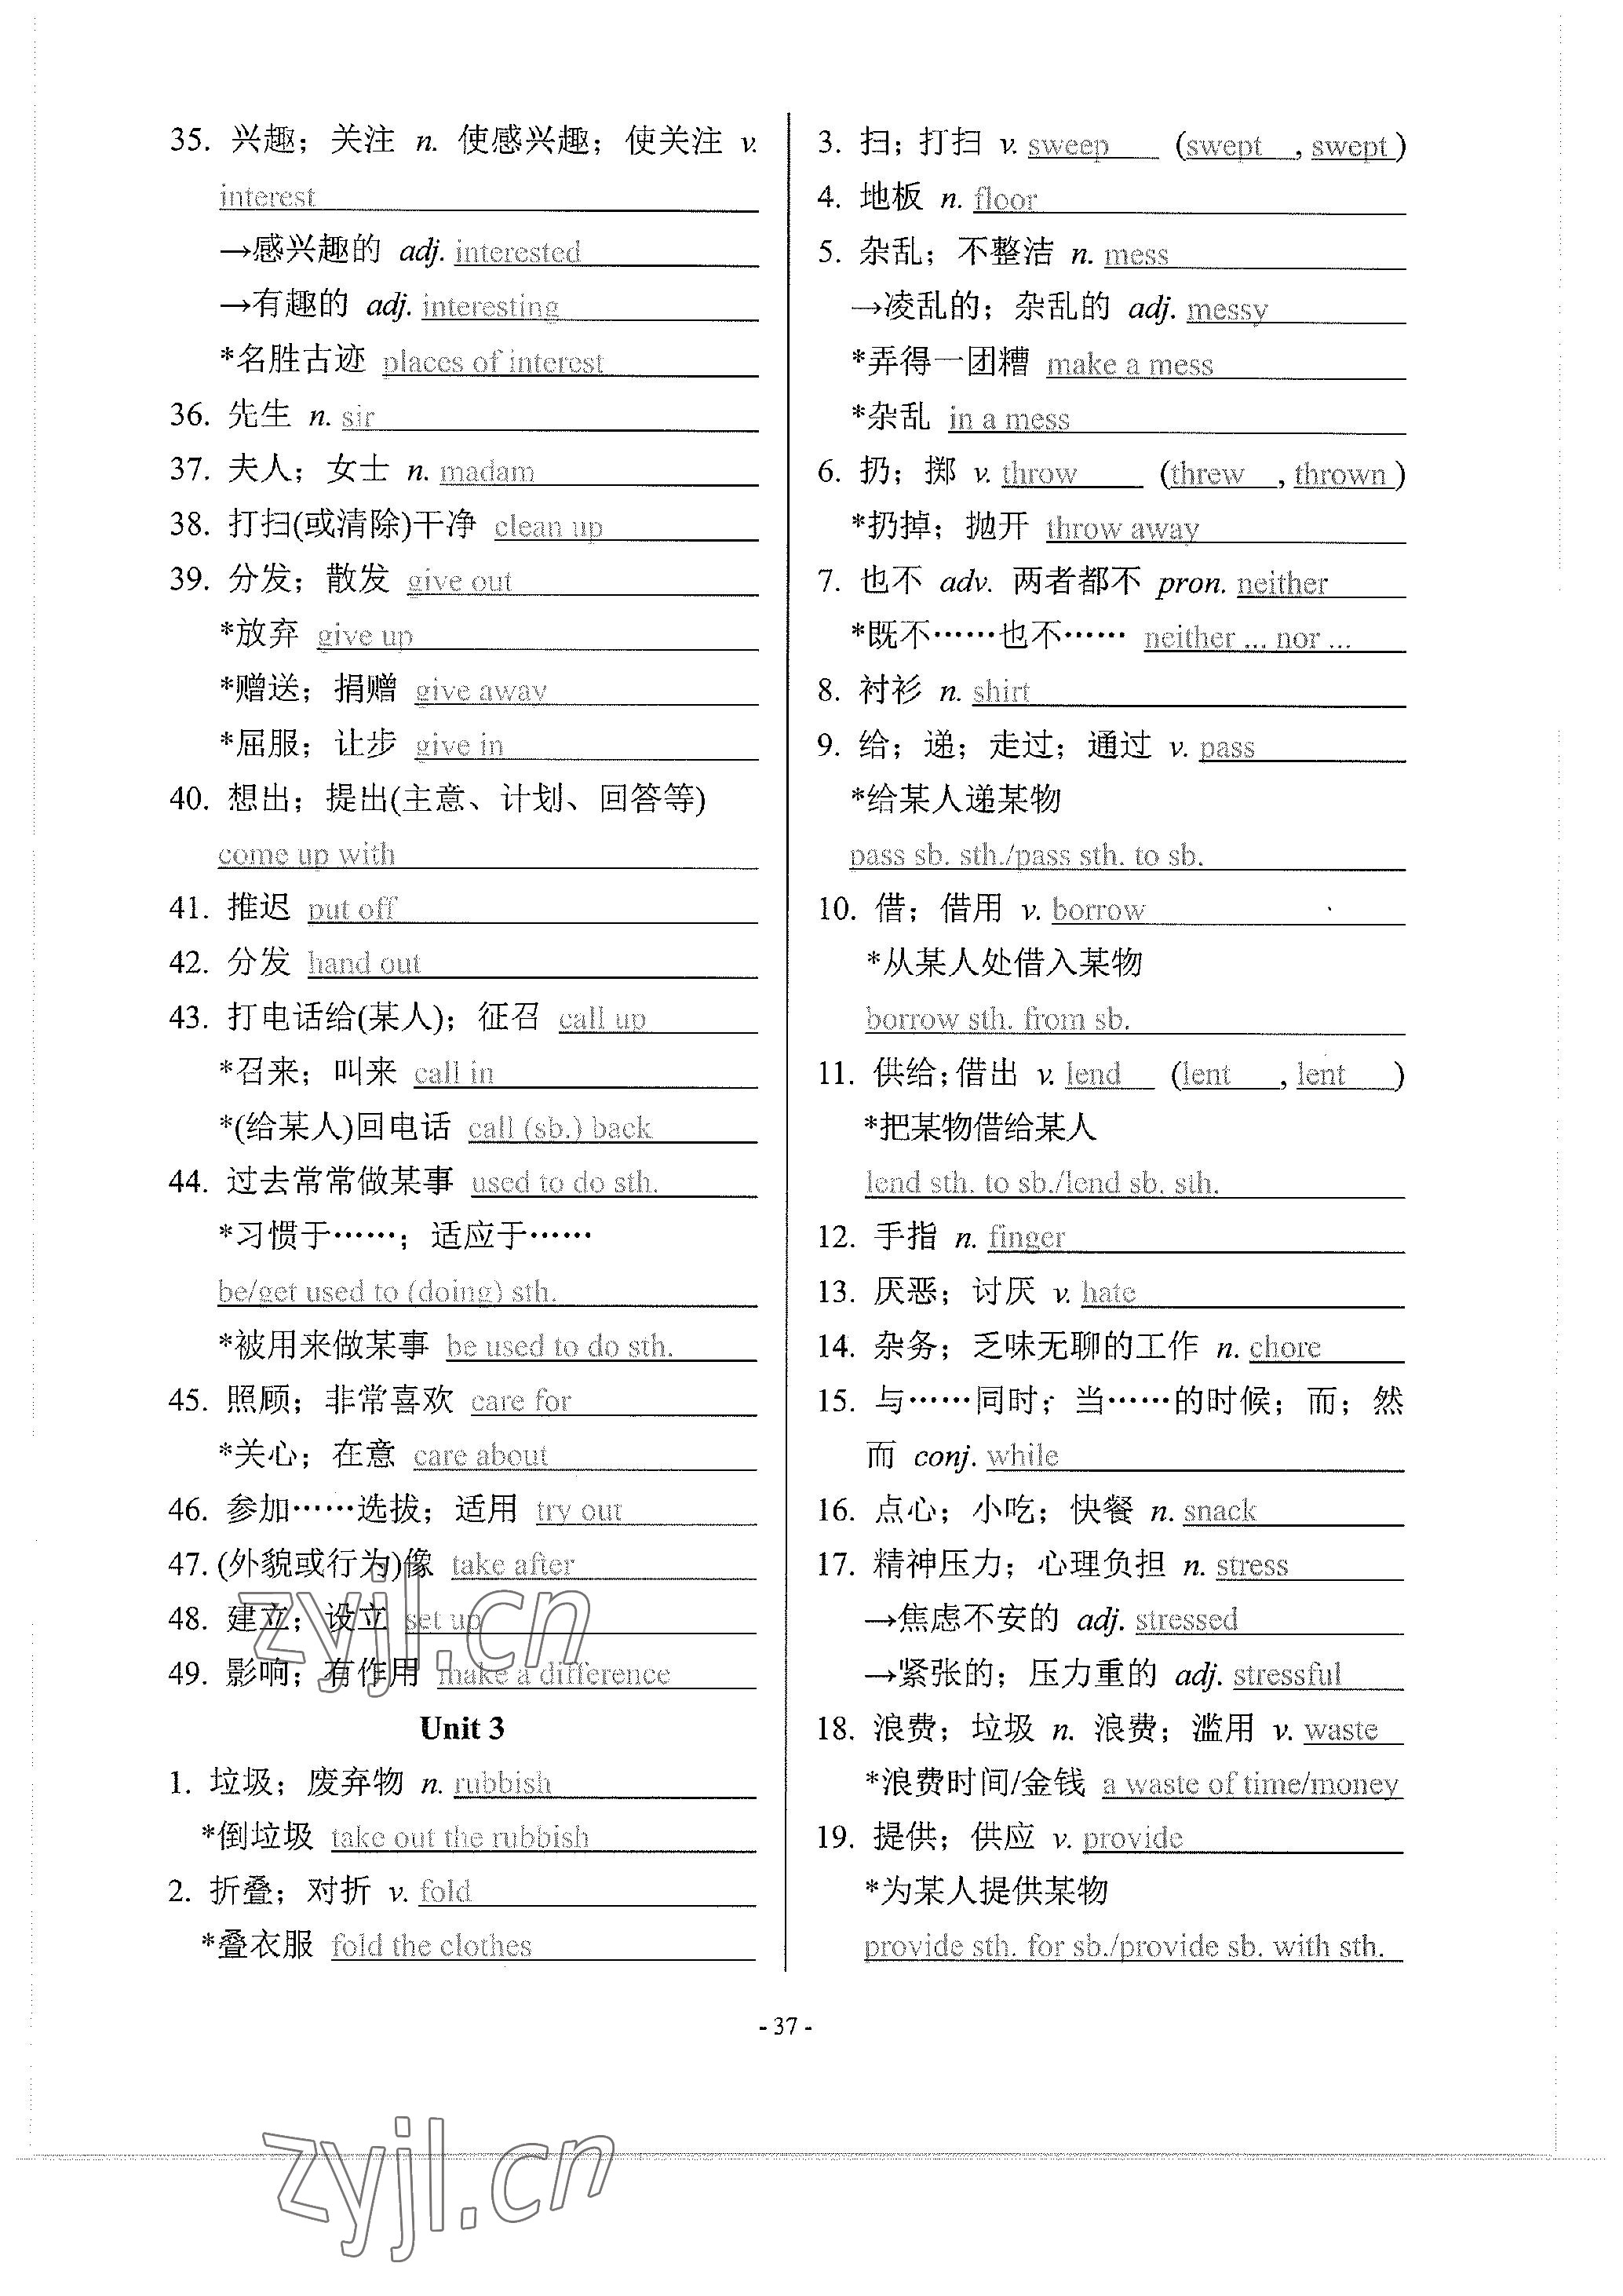 35. 兴趣；关注 n. 使感兴趣；使关注 v.
interest
→感兴趣的 adj. interested
→有趣的 adj. interesting
*名胜古迹 places of interest
36. 先生 n. sir
37. 夫人；女士 n. madam
38. 打扫(或清除)干净 clean up
39. 分发；散发 give out
*放弃 give up
*赠送；捐赠 give away
*屈服；让步 give in
40. 想出；提出(主意、计划、回答等)
come up with
41. 推迟 put off
42. 分发 hand out
43. 打电话给(某人)；征召 call up
*召来；叫来 call in
*(给某人)回电话 call (sb.) back
44. 过去常常做某事 used to do sth.
*习惯于……；适应于……
be/get used to (doing) sth.
*被用来做某事 be used to do sth.
45. 照顾；非常喜欢 care for
*关心；在意 care about
46. 参加……选拔；适用 try out
47. (外貌或行为)像 take after
48. 建立；设立 set up
49. 影响；有作用 make a difference
Unit 3
1. 垃圾；废弃物 n. rubbish
*倒垃圾 take out the rubbish
2. 折叠；对折 v. fold
*叠衣服 fold the clothes
3. 扫；打扫 v. sweep (swept, swept)
4. 地板 n. floor
5. 杂乱；不整洁 n. mess
→凌乱的；杂乱的 adj. messy
*弄得一团糟 make a mess
*杂乱 in a mess
6. 扔；掷 v. throw (threw, thrown)
*扔掉；抛开 throw away
7. 也不 adv. 两者都不 pron. neither
*既不……也不…… neither ... nor ...
8. 衬衫 n. shirt
9. 给；递；走过；通过 v. pass
*给某人递某物
pass sb. sth./pass sth. to sb.
10. 借；借用 v. borrow
*从某人处借入某物
borrow sth. from sb.
11. 供给；借出 v. lend (lent, lent)
*把某物借给某人
lend sth. to sb./lend sb. sth.
12. 手指 n. finger
13. 厌恶；讨厌 v. hate
14. 杂务；乏味无聊的工作 n. chore
15. 与……同时；当……的时候；而；然
而 conj. while
16. 点心；小吃；快餐 n. snack
17. 精神压力；心理负担 n. stress
→焦虑不安的 adj. stressed
→紧张的；压力重的 adj. stressful
18. 浪费；垃圾 n. 浪费；滥用 v. waste
*浪费时间/金钱 a waste of time/money
19. 提供；供应 v. provide
*为某人提供某物
provide sth. for sb./provide sb. with sth.
- 37 -
zyjl.cn
zyjl.cn